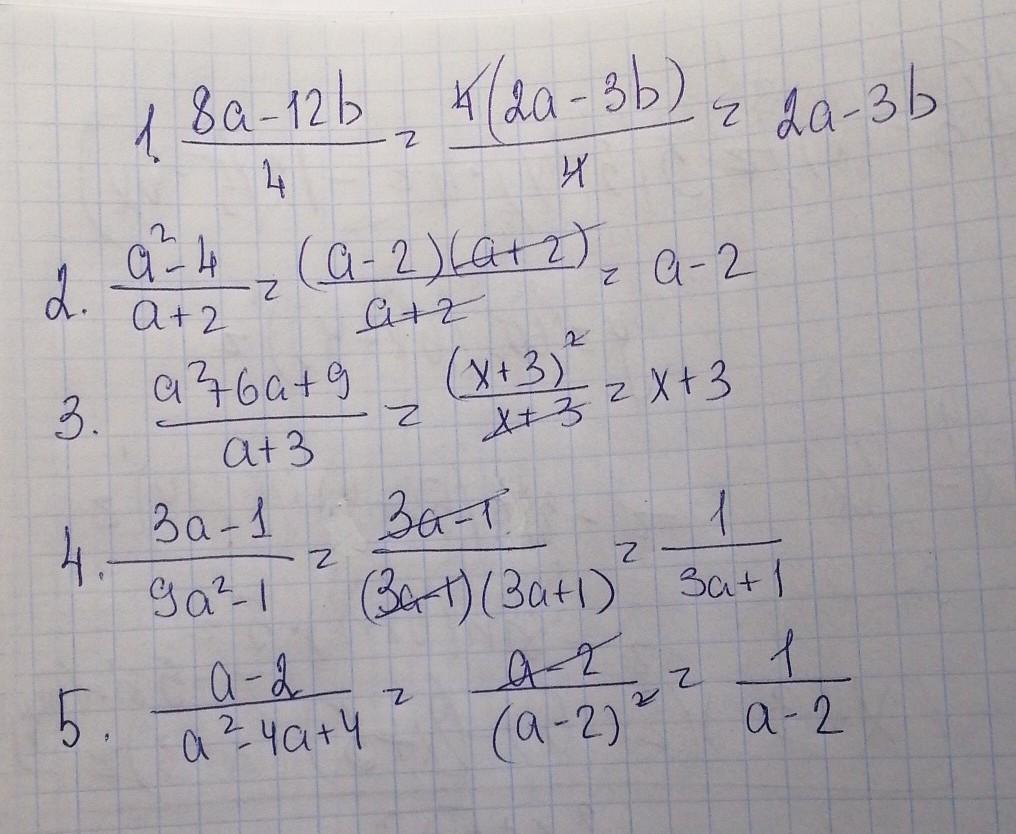 1. (8a-12b)/4 = 4(2a-3b)/4 = 2a-3b
2. (a²-4)/(a+2) = (a-2)(a+2)/(a+2) = a-2
3. (a²+6a+9)/(a+3) = (x+3)²/(x+3) = x+3
4. (3a-1)/(9a²-1) = (3a-1)/((3a-1)(3a+1)) = 1/(3a+1)
5. (a-2)/(a²-4a+4) = (a-2)/(a-2)² = 1/(a-2)